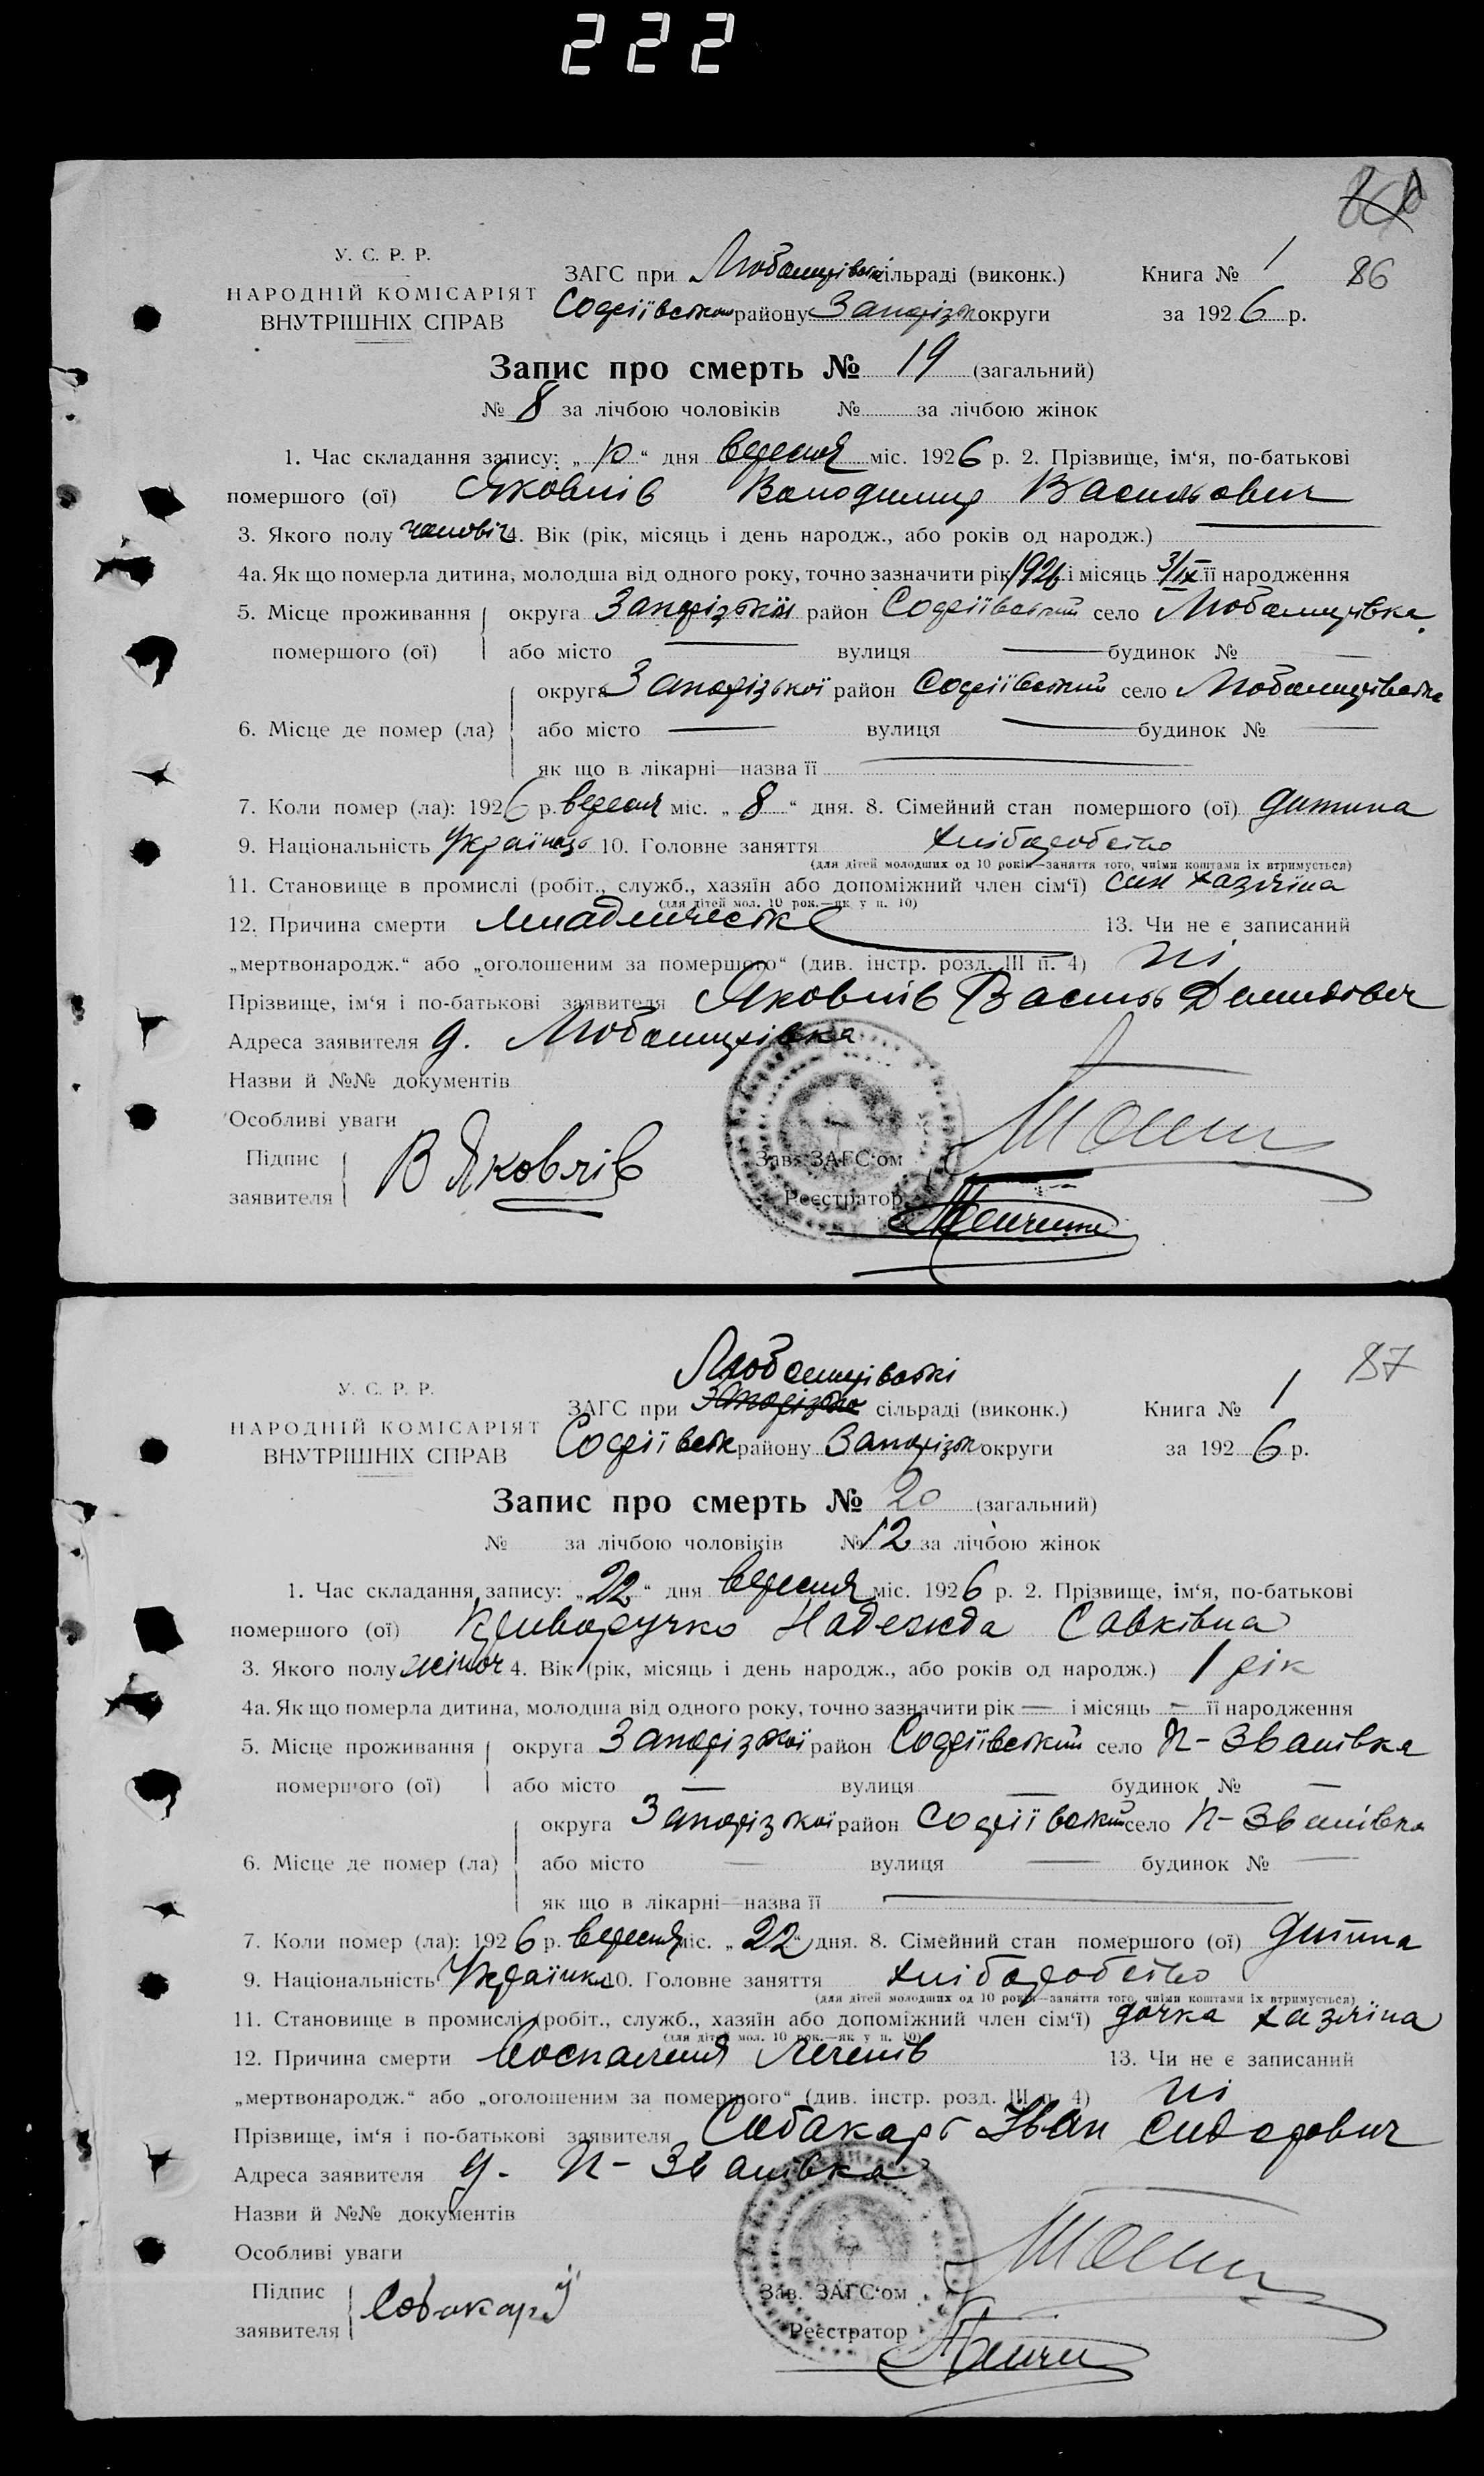 222
86
У. С. Р. Р.
НАРОДНІЙ КОМІСАРІЯТ
ВНУТРІШНІХ СПРАВ
ЗАГС при Любомирівськ сільраді (виконк.) Книга № 1
Софіївськ району Запоріз округи за 1926 р.
Запис про смерть № 19 (загальний)
№ 8 за лічбою чоловіків № за лічбою жінок
1. Час складання запису: „10“ дня вересня міс. 1926 р. 2. Прізвище, ім‘я, по-батькові
помершого (ої) Яковлів Володимир Васильович
3. Якого полу чоловіч 4. Вік (рік, місяць і день народж., або років од народж.)
4а. Як що померла дитина, молодша від одного року, точно зазначити рік 1926 і місяць 3/IX її народження
5. Місце проживання округа Запорізькій район Софіївський село Любомирівка
помершого (ої) або місто — вулиця — будинок № —
округа Запорізької район Софіївський село
6. Місце де помер (ла) або місто — вулиця — будинок № —
як що в лікарні—назва її —
7. Коли помер (ла): 1926 р. вересня міс. „8“ дня. 8. Сімейний стан помершого (ої) дитина
9. Національність Українець 10. Головне заняття хліборобство
(для дітей молодших од 10 років—заняття того, чиїми коштами їх втримується)
11. Становище в промислі (робіт., служб., хазяїн або допоміжний член сім‘ї) син хазяїна
(для дітей мол. 10 рок.—як у п. 10)
12. Причина смерти младенческе 13. Чи не є записаний
„мертвонародж.“ або „оголошеним за помершого“ (див. інстр. розд. III п. 4) ні
Прізвище, ім‘я і по-батькові заявителя Яковлів Василь Демидович
Адреса заявителя д. Любомирівка
Назви й №№ документів
Особливі уваги
Підпис
заявителя В Яковлів
Зав. ЗАГС‘ом
Реєстратор
87
У. С. Р. Р.
НАРОДНІЙ КОМІСАРІЯТ
ВНУТРІШНІХ СПРАВ
Любомирівські
ЗАГС при Запорізьк сільраді (виконк.) Книга № 1
Софіївськ району Запорізьк округи за 1926 р.
Запис про смерть № 20 (загальний)
№ за лічбою чоловіків № 12 за лічбою жінок
1. Час складання запису: „22“ дня вересня міс. 1926 р. 2. Прізвище, ім‘я, по-батькові
помершого (ої) Криворучко Надежда Савківна
3. Якого полу жіноч 4. Вік (рік, місяць і день народж., або років од народж.) 1 рік
4а. Як що померла дитина, молодша від одного року, точно зазначити рік — і місяць — її народження
5. Місце проживання округа Запорізької район Софіївський село П-Званівка
помершого (ої) або місто — вулиця — будинок № —
округа Запорізької район Софіївський село П-Званівка
6. Місце де помер (ла) або місто — вулиця — будинок № —
як що в лікарні—назва її —
7. Коли помер (ла): 1926 р. вересня міс. „22“ дня. 8. Сімейний стан помершого (ої) дитина
9. Національність Українка 10. Головне заняття хліборобство
(для дітей молодших од 10 років—заняття того, чиїми коштами їх втримується)
11. Становище в промислі (робіт., служб., хазяїн або допоміжний член сім‘ї) дочка хазяїна
(для дітей мол. 10 рок.—як у п. 10)
12. Причина смерти Воспалення Легенів 13. Чи не є записаний
„мертвонародж.“ або „оголошеним за помершого“ (див. інстр. розд. III п. 4) ні
Прізвище, ім‘я і по-батькові заявителя Собакарь Іван Сидорович
Адреса заявителя д. П-Званівка
Назви й №№ документів
Особливі уваги
Підпис
заявителя Собакарь
Зав. ЗАГС‘ом
Реєстратор